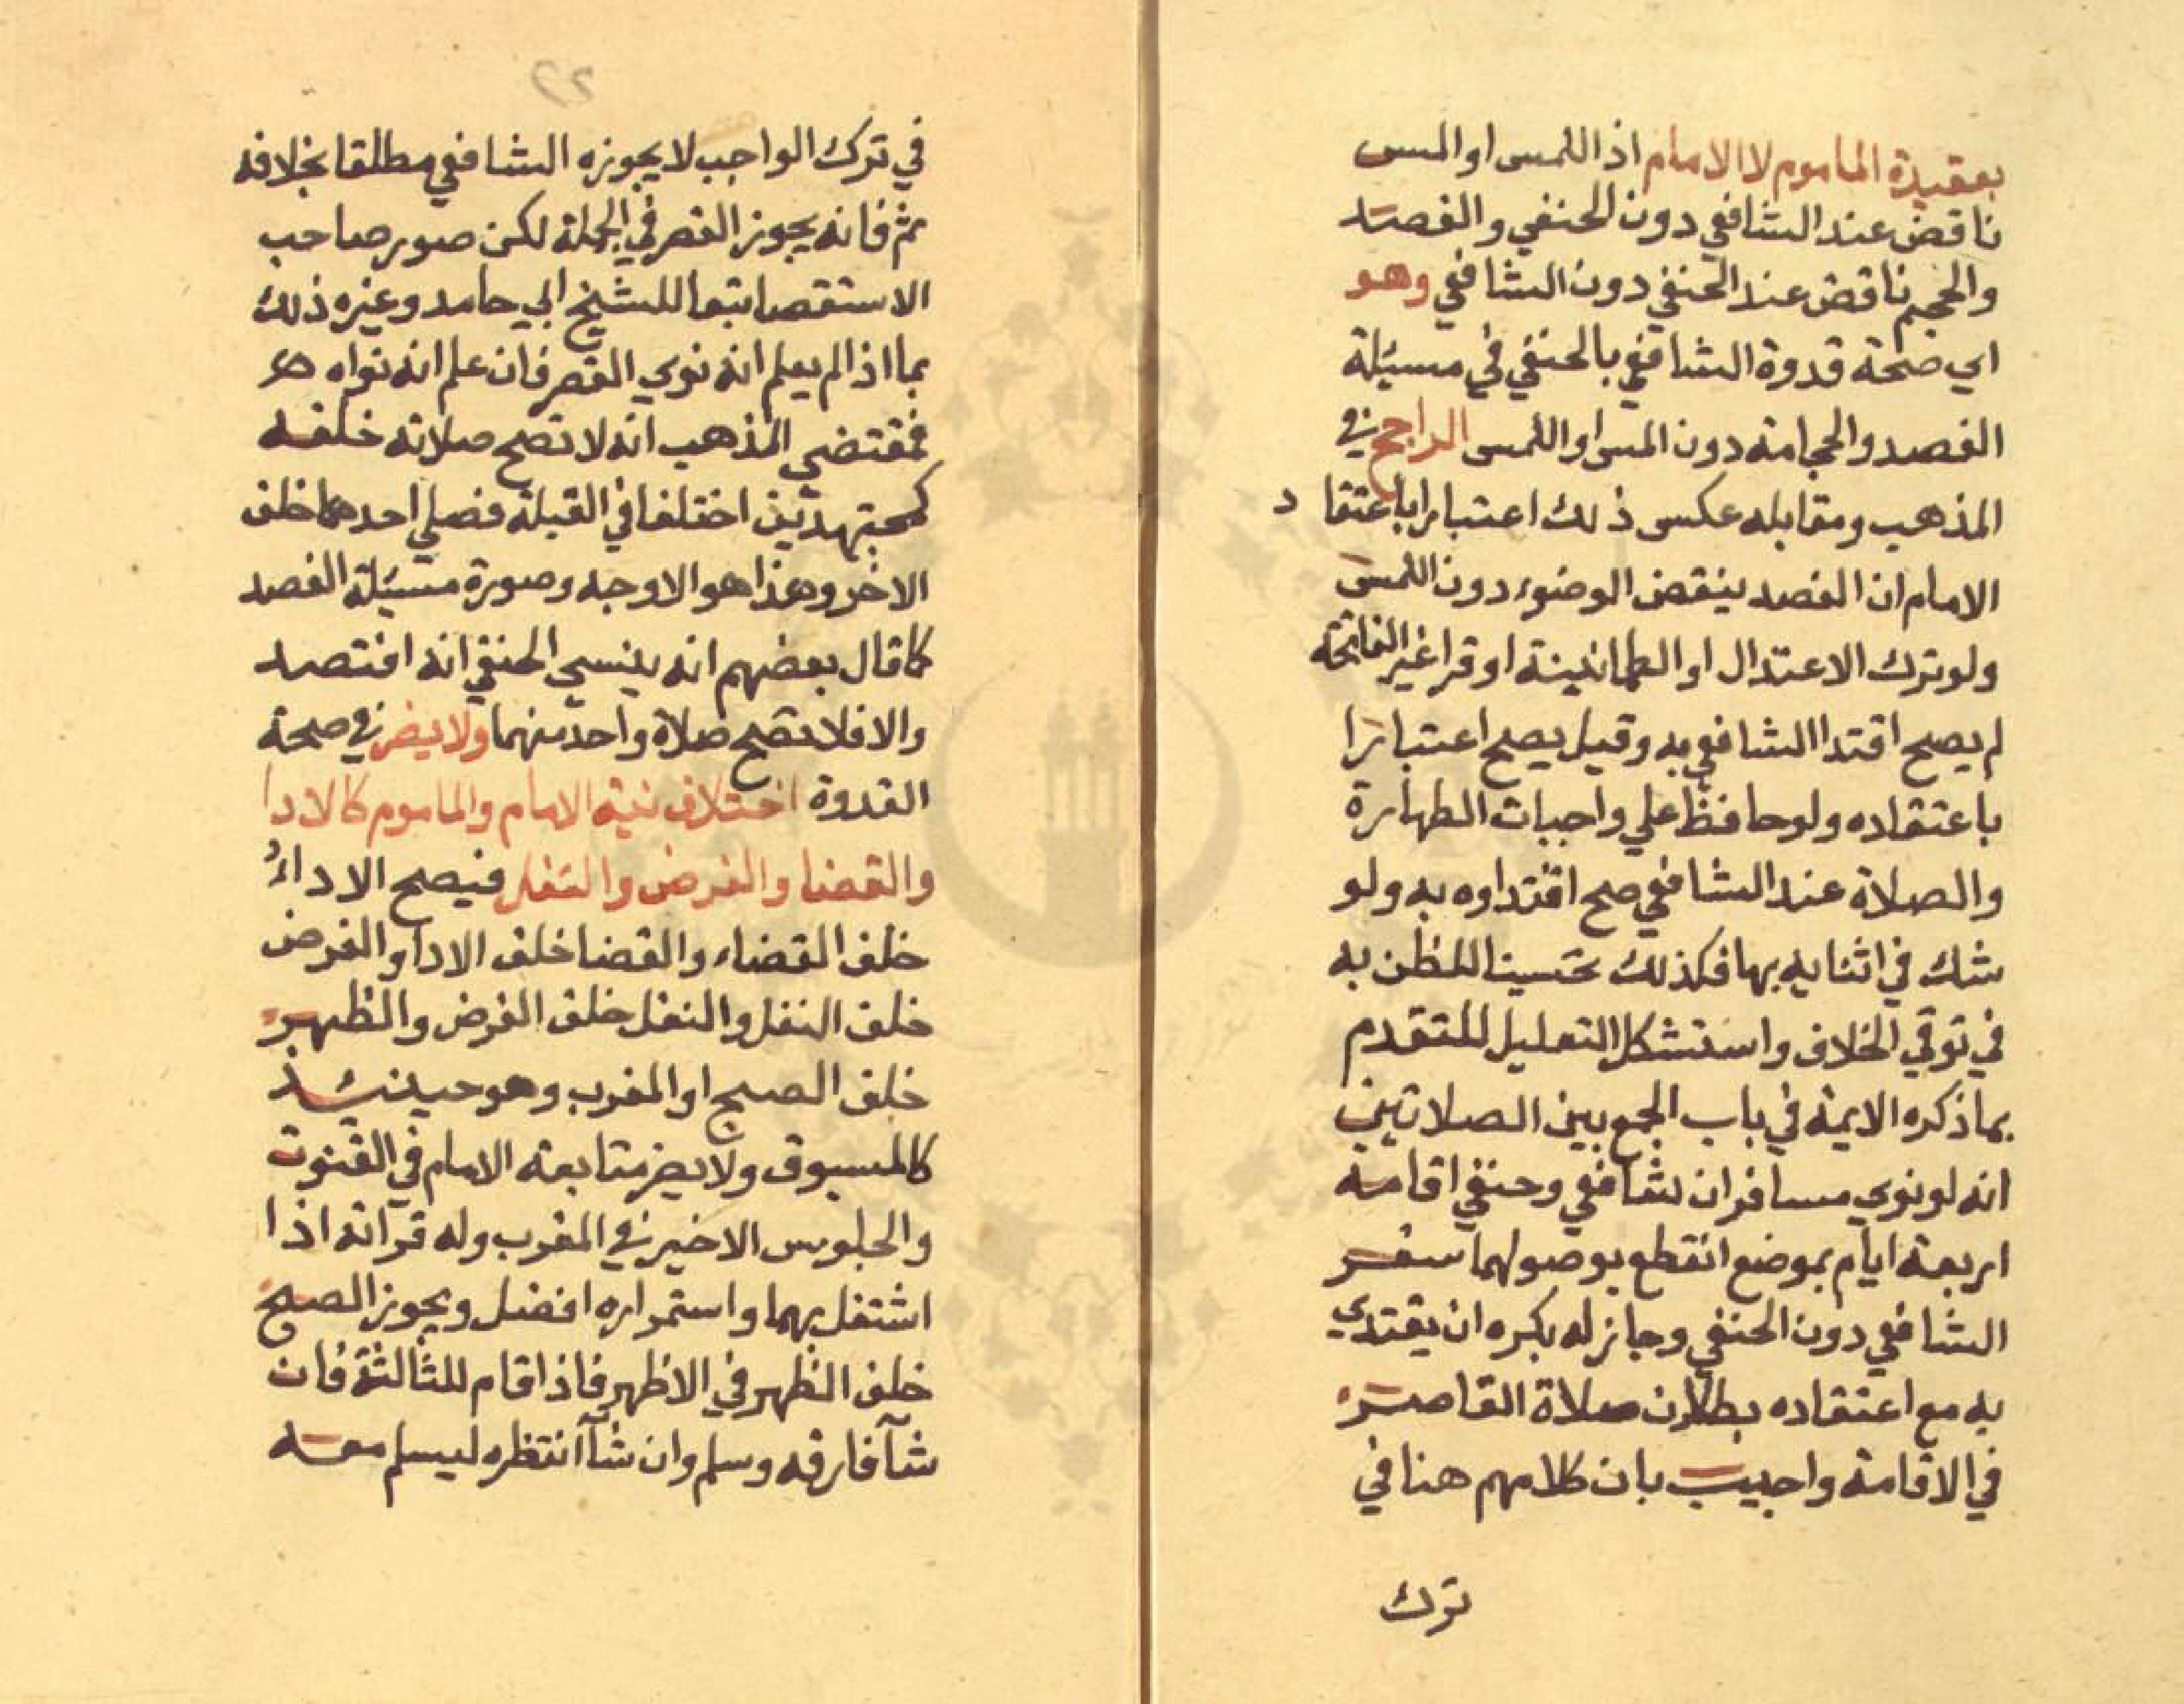 بعقيدة الماموم لا الامام اذ اللمس او المس
ناقض عند الشافعي دون الحنفي والفصد
والحجم ناقض عند الحنفي دون الشافعي وهو
اي صحة قدوة الشافعي بالحنفي في مسئلة
الفصد والحجامة دون المس او اللمس الراجح في
المذهب ومقابله عكس ذلك اعتبارا باعتقاد
الامام ان الفصد ينقض الوضوء دون اللمس
ولو ترك الاعتدال او الطمانينة او قرا غير الفاتحة
لم يصح اقتدا الشافعي به وقيل يصح اعتبارا
باعتقاده ولو حافظ علي واجبات الطهارة
والصلاة عند الشافعي صح اقتداوه به ولو
شك في اثنايه بها فكذلك تحسينا للظن به
في توقي الخلاف واستشكل التعليل للمتقدم
بما ذكره الايمة في باب الجمع بين الصلاتين
انه لو نوي مسافران شافعي وحنفي اقامة
اربعة ايام بموضع انقطع بوصولهما سفر
الشافعي دون الحنفي وجاز له بكره ان يقتدي
به مع اعتقاده بطلان صلاة القاصر
في الاقامة واجيب بان كلامهم هنا في
ترك
في ترك الواجب لا يجوزه الشافعي مطلقا بخلافه
ثم فانه يجوز القصر في الجملة لكن صور صاحب
الاستقصا تبعا للشيخ ابي حامد وغيره ذلك
بما اذا لم يعلم انه نوي القصر فان علم انه نواه
فمقتضي المذهب انه لا تصح صلاته خلفه
كمجتهدين اختلفا في القبلة فصلي احدهما خلف
الاخر وهذا هو الاوجه وصورة مسئلة الفصد
كما قال بعضهم انه ينسي الحنفي انه افتصد
والا فلا تصح صلاة واحد منهما ولا يضر في صحة
القدوة اختلاف نية الامام والماموم كالادا
والقضا والفرض والنفل فيصح الاداءُ
خلف القضاء والقضا خلف الادا والفرض
خلف النفل والنفل خلف الفرض والظهر
خلف الصبح او المغرب وهو حينئذ
كالمسبوق ولا يضر متابعة الامام في القنوت
والجلوس الاخير في المغرب وله قراته اذا
اشتغل بهما واستمراره افضل ويجوز الصبح
خلف الظهر في الاظهر فاذا قام للثالثة فان
شآ فارقه وسلم وان شآ انتظره ليسلم معه